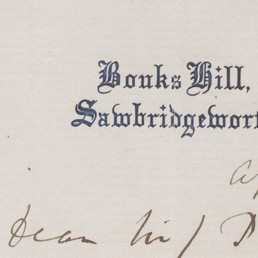 Bonks Hill,
Sawbridgewor
Dear Sir/